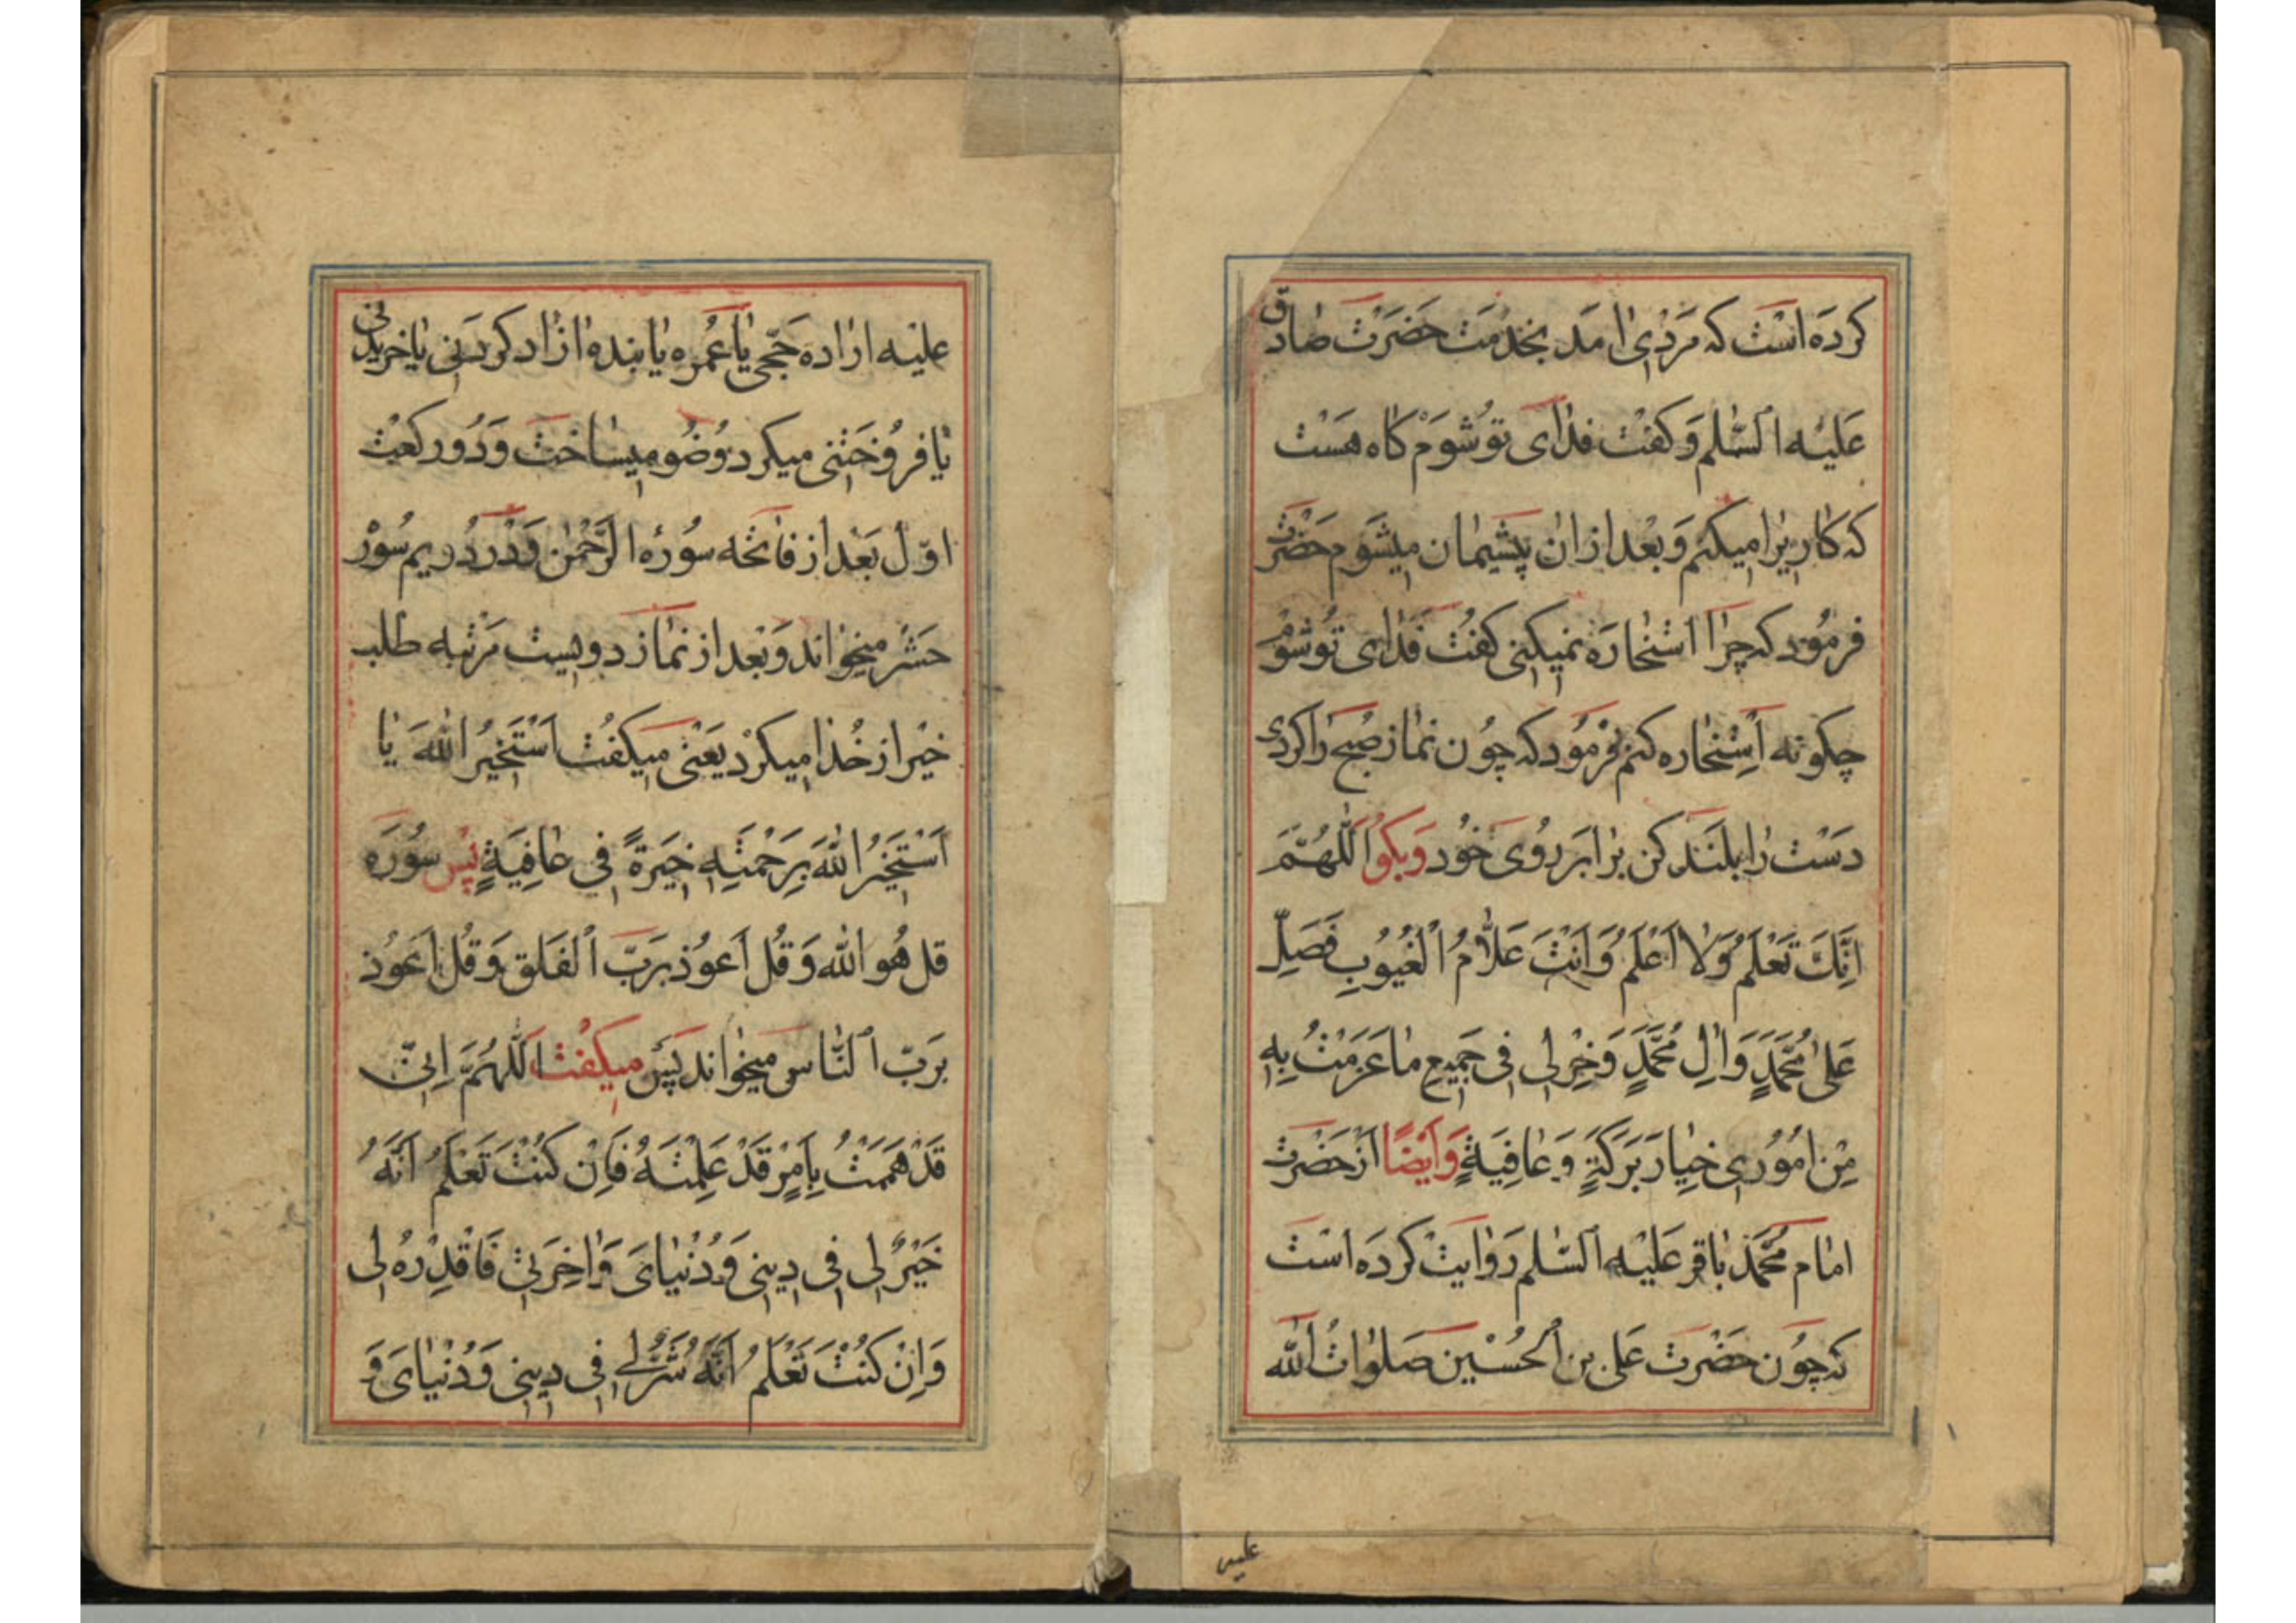 کرده است که مردی امد بخدمت حضرت صادق
عَلَیْه السّٰلم وَ کفت فدٰای تو شوَم کاه هست
که کاریرا میکنم وَ بعْد از ان پشیمان میشَوم حضرت
فرمُود که چرٰا استخٰارَه نمیکنی کفت فدٰای تو شوم
چکونه اِسْتخاره کنم فرمُود که چُون نماز صُبح رٰا کردی
دَسْت رٰا بلَنَد کن برٰابر رُوی خُود وَبکو اَللّٰهُمَّ
اِنَّکَ تَعْلَمُ وَلٰا اَعْلَمُ وَ اَنْتَ عَلّٰامُ الْغُیُوبِ فَصَلِّ
عَلیٰ مُحَمَّدٍ وَ اٰلِ مُحَمَّدٍ وَ خِرْ لِی فِی جَمِیعِ مٰا عَزَمْتُ بِهِ
مِنْ اُمُورِی خِیٰارَ بَرَکَةٍ وَ عٰافِیَةٍ وَ اَیْضًا اَز حَضْرت
امٰام مُحَمّد بٰاقر عَلیْه السّٰلم رَوٰایت کردَه است
که چُون حَضْرت عَلی بن الحُسَیْن صَلَوٰاتُ اللّٰه
علیه
علیْه ارٰاده حَجّی یٰا عُمره یٰا بنده ازٰاد کردَنی یٰا خریدنی
یٰا فرُوخَتنی میکرد وُضُو میسٰاخت وَ دُو رکعت
اوّل بَعْد از فٰاتحَه سُورهٔ الرَّحْمٰن وَ دَر دُویم سُورَ
حَشْر میخوٰاند وَ بَعْد از نمٰاز دویست مَرْتبه طلب
خیْر از خُدا میکرْد یَعْنی میکفْت اَسْتَخیرُ اللّٰهَ یٰا
اَسْتَخِیرُ اللّٰهَ بِرَحْمَتِهِ خِیَرَةً فِی عٰافِیَةٍ پس سُورَه
قل هُو اللّٰه وَ قُل اَعوُذ برَبّ الْفَلَق وَ قُل اَعَوُذ
برَبّ النّٰاس میخوٰاند پَس میکفْت اَللّٰهُمَّ اِنِّی
قَدْ هَمَمْتُ بِاَمْرٍ قَدْ عَلِمْتَهُ فَاِنْ کُنْتَ تَعْلَمُ اَنَّهُ
خَیْرٌ لِی فِی دِینِی وَ دُنْیٰایَ وَ اٰخِرَتِی فَاقْدِرْهُ لِی
وَ اِنْ کُنْتَ تَعْلَمُ اَنَّهُ شَرٌّ لِی فِی دِینِی وَ دُنْیٰایَ وَ